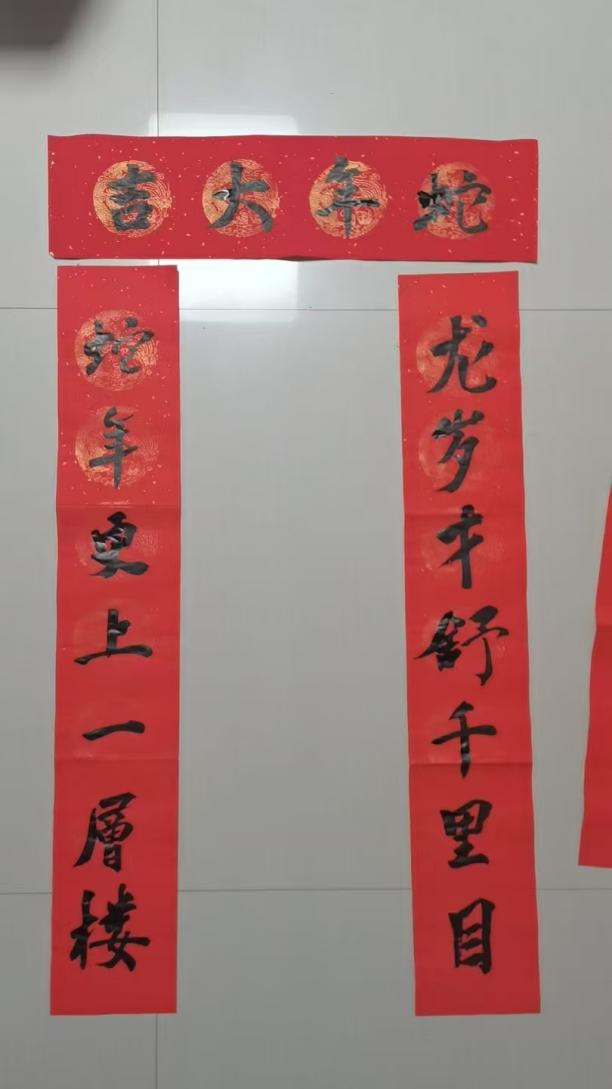 蛇年大吉
龙岁才舒千里目
蛇年更上一层楼